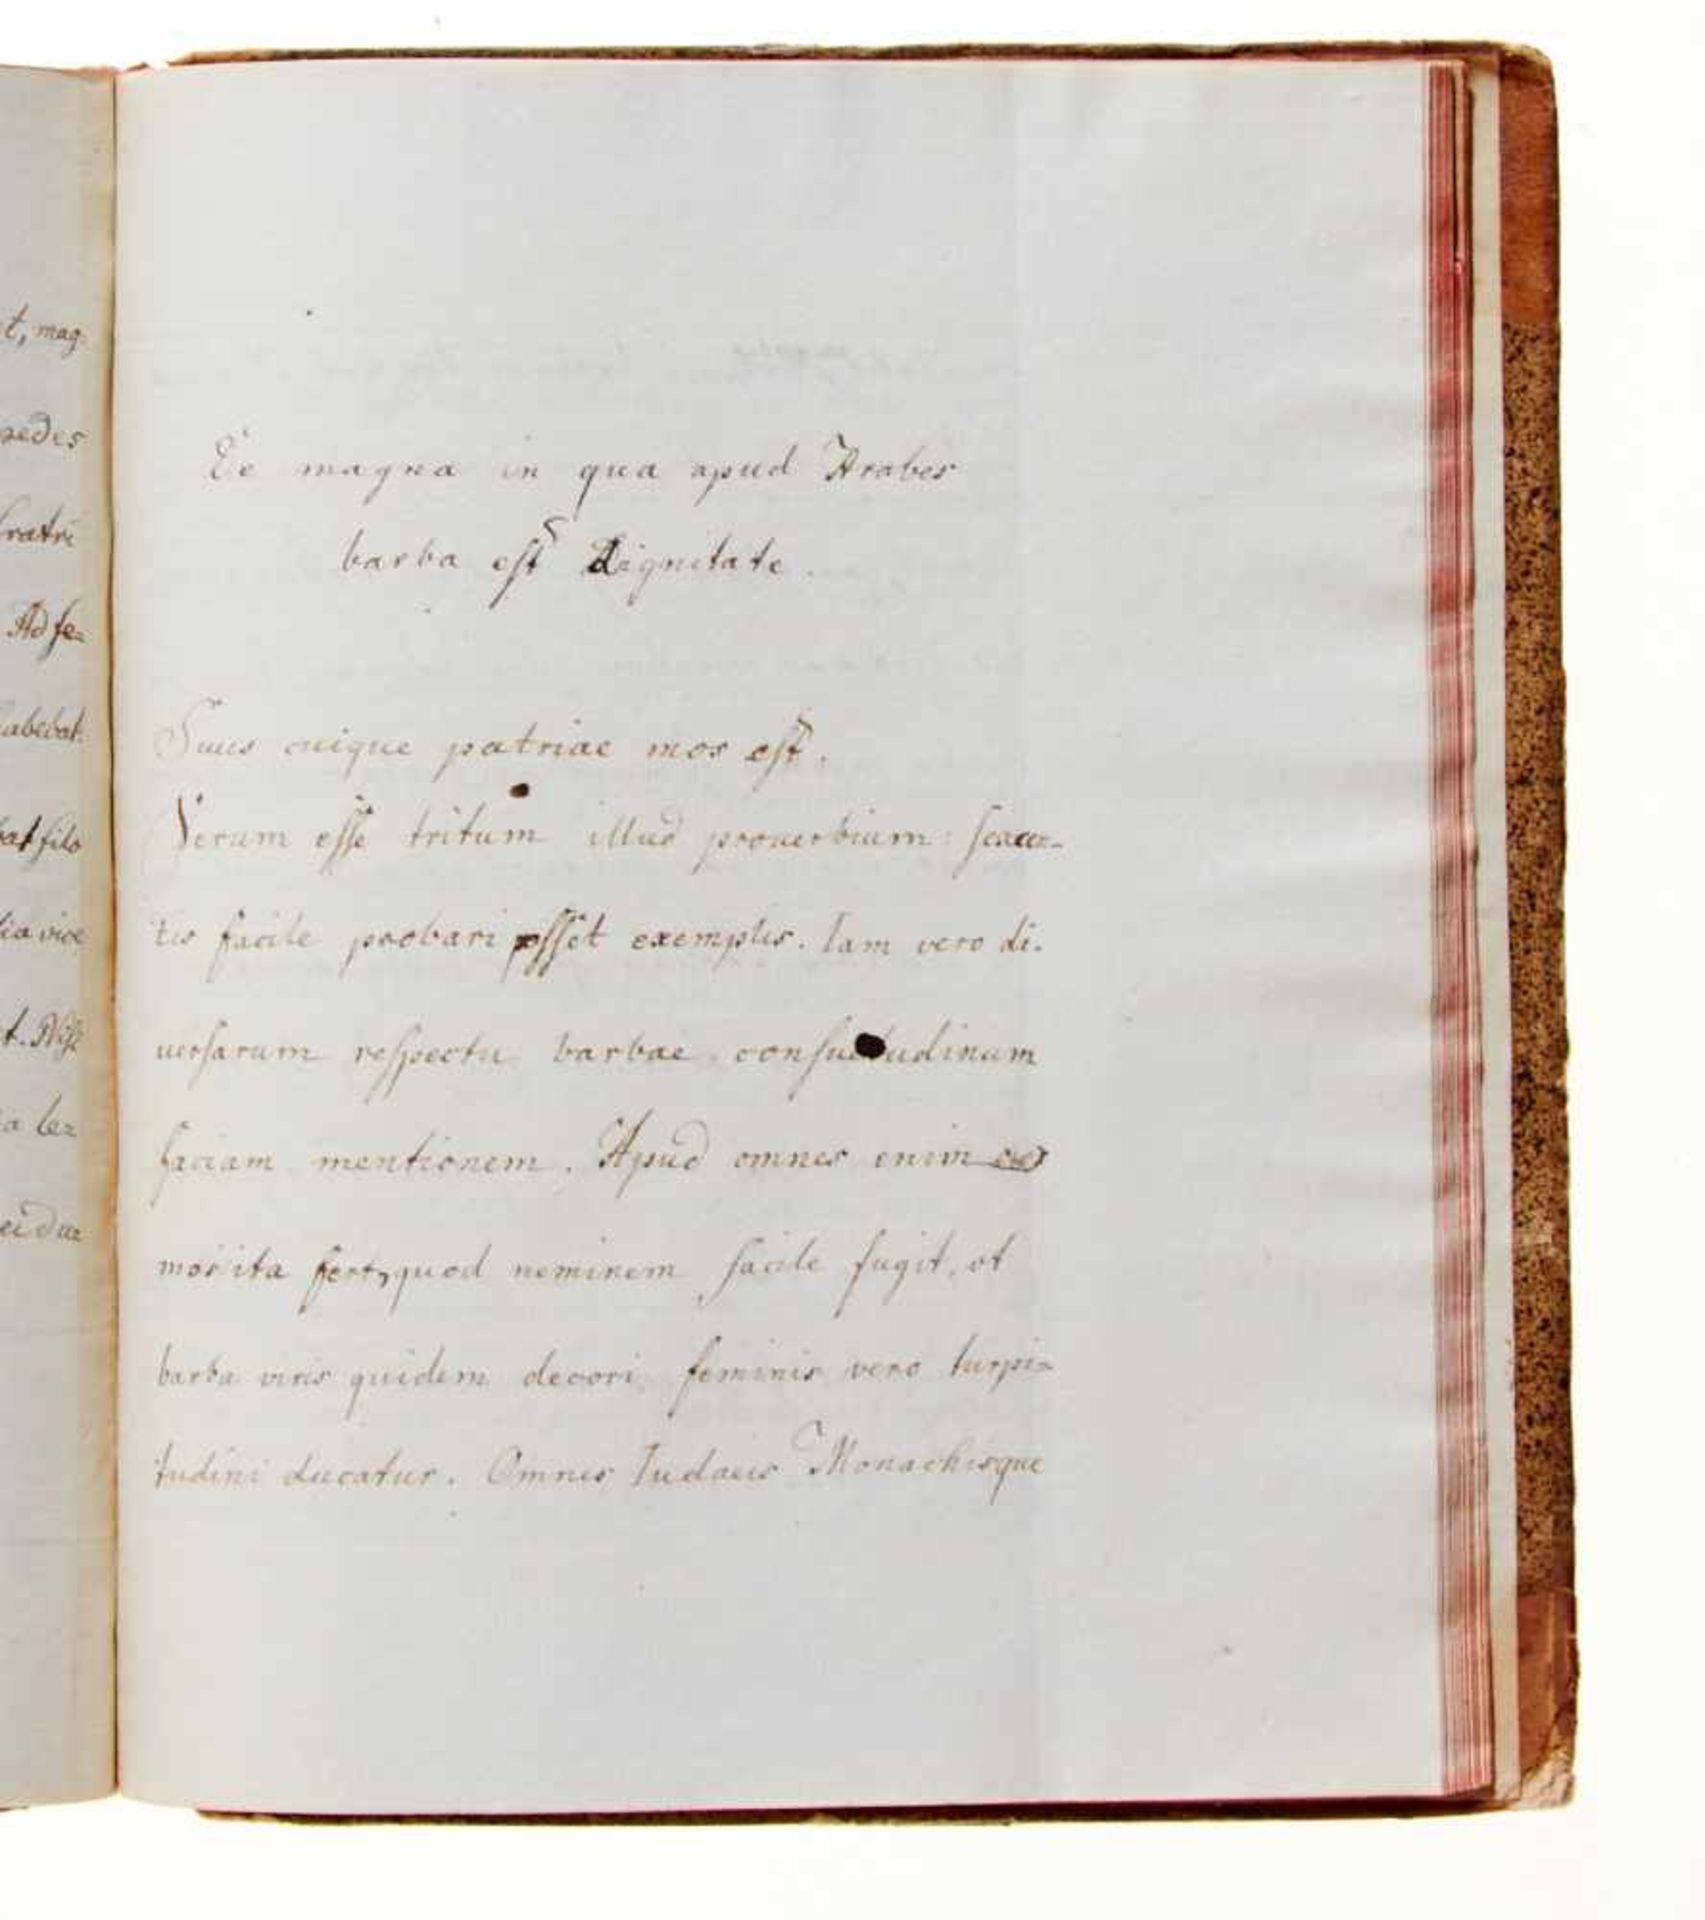 t, mag-
pedes
fratri
Ad se-
habebat.
bat filo
lia vice
t. Nisi
a le-
ei du-
De magna in qua apud Arabes
barba est dignitate.
Suus cuique patriae mos est.
Verum esse tritum illud prouerbium
tis facile probari posset exemplis. Iam vero di-
uersarum respectu barbae consuetudinum
faciam mentionem. Apud omnes enim
mos ita fert, quod neminem facile fugit, ut
barba viris quidem decori, feminis vero turpi-
tudini ducatur. Omnes Iudaeis Monachisque